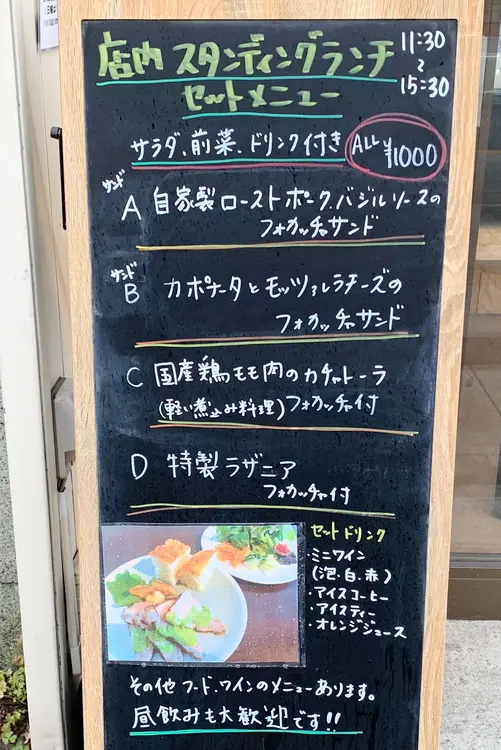 店内 スタンディングランチ
セットメニュー
11:30
～
15:30
サラダ、前菜、ドリンク付き
ALL ¥1000
サンド
A 自家製ローストポーク、バジルソースの
フォカッチャサンド
サンド
B カポナータとモッツァレラチーズの
フォカッチャサンド
C 国産鶏モモ肉のカチャトーラ
(軽い煮込み料理)フォカッチャ付
D 特製ラザニア
フォカッチャ付
セットドリンク
・ミニワイン
(泡・白・赤)
・アイスコーヒー
・アイスティー
・オレンジジュース
その他フード、ワインのメニューあります。
昼飲みも大歓迎です!!